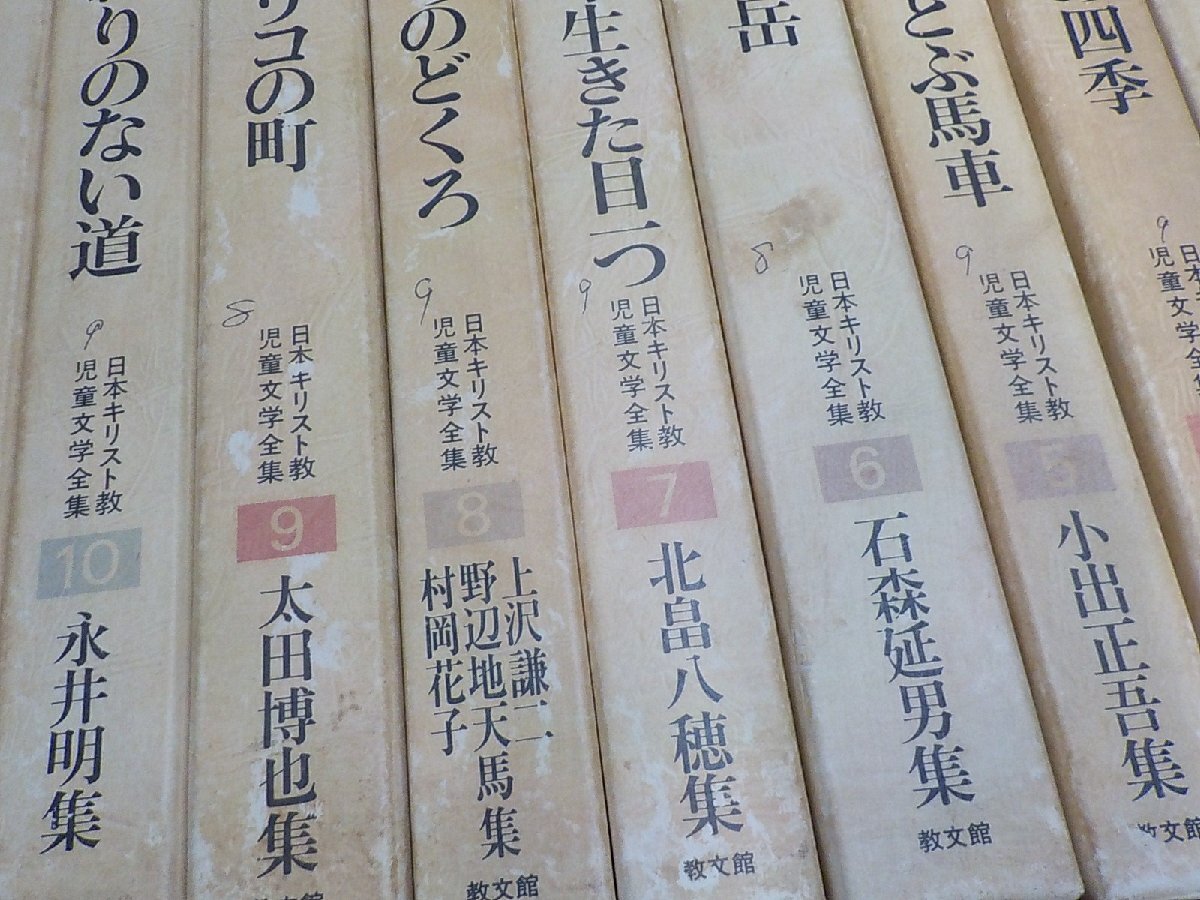 りのない道
9
日本キリスト教
児童文学全集
10
永井明集
リコの町
8
日本キリスト教
児童文学全集
9
太田博也集
教文館
のどくろ
9
日本キリスト教
児童文学全集
8
上沢謙二
野辺地天馬集
村岡花子
教文館
生きた目一つ
9
日本キリスト教
児童文学全集
7
北畠八穂集
教文館
岳
8
日本キリスト教
児童文学全集
6
石森延男集
教文館
とぶ馬車
9
日本キリスト教
児童文学全集
5
小出正吾集
教文館
四季
9
日本キリスト教
児童文学全集